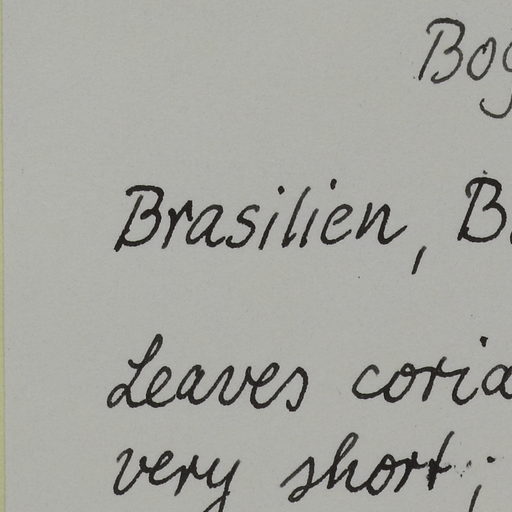 Bog
Brasilien, B
Leaves coria
very short;